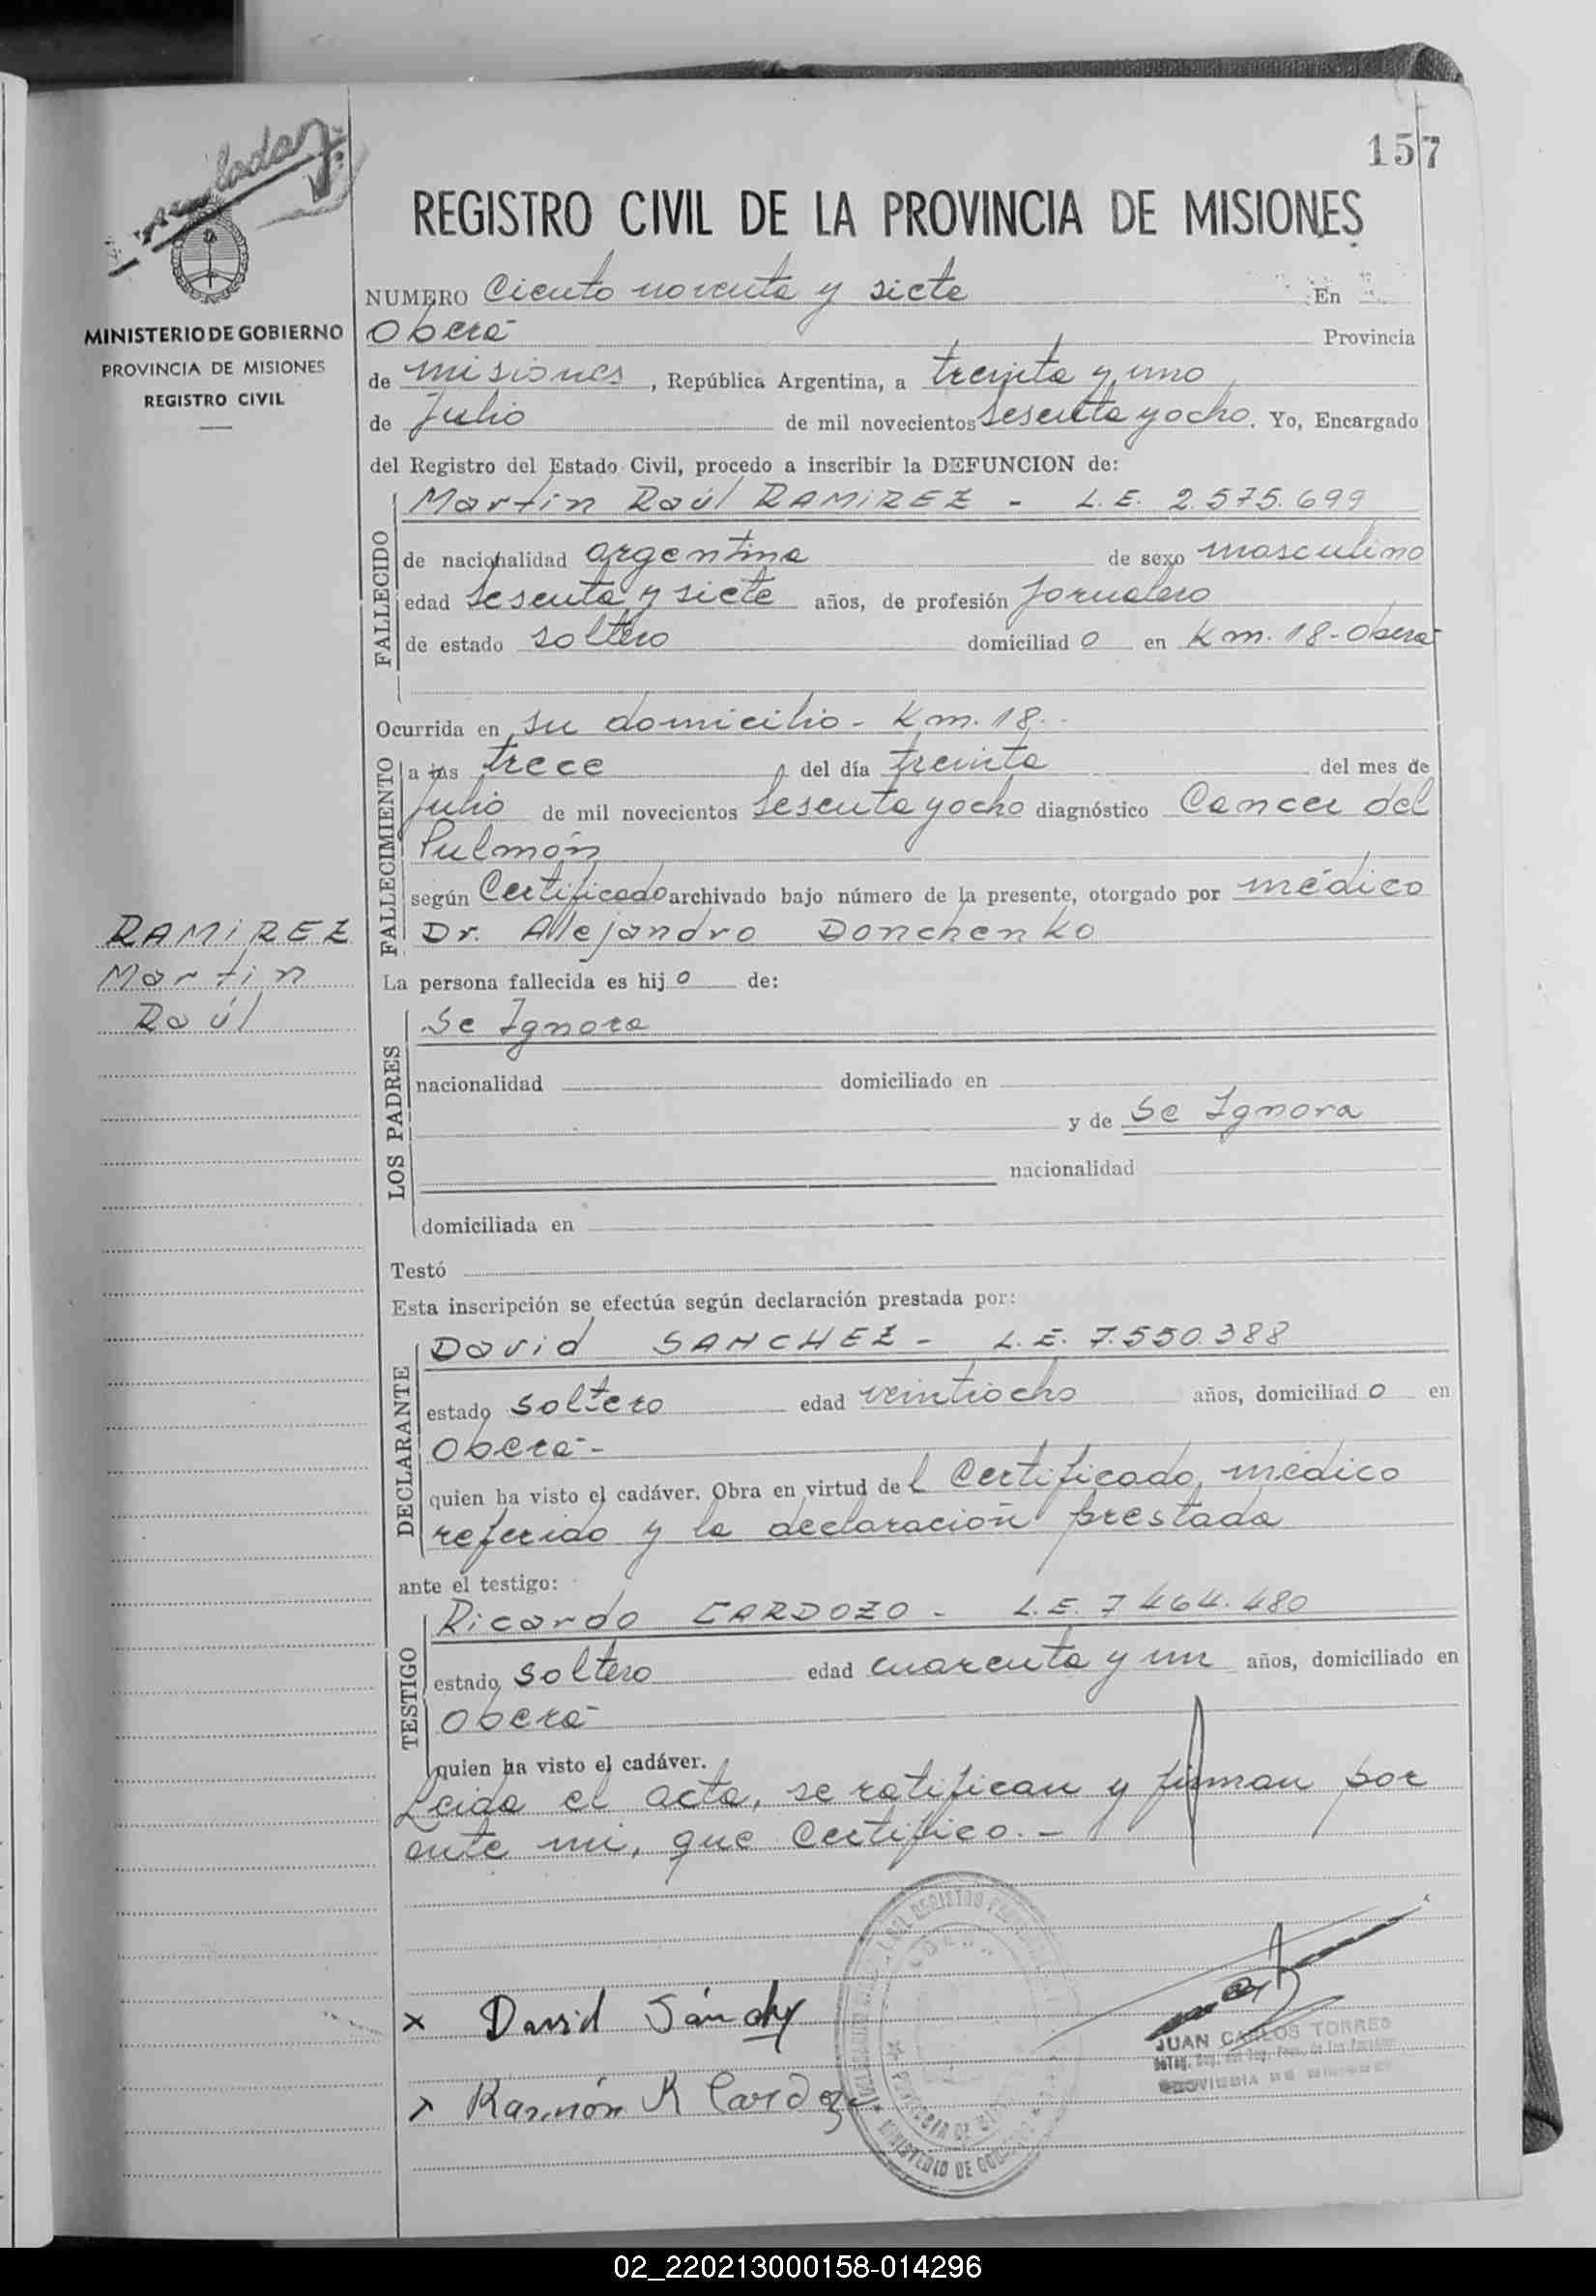 157
REGISTRO CIVIL DE LA PROVINCIA DE MISIONES
MINISTERIO DE GOBIERNO
PROVINCIA DE MISIONES
REGISTRO CIVIL
NUMERO Ciento noventa y siete En
Oberá Provincia
de Misiones, República Argentina, a treinta y uno
de Julio de mil novecientos Sesenta y ocho. Yo, Encargado
del Registro del Estado Civil, procedo a inscribir la DEFUNCION de:
FALLECIDO
Martín Raúl RAMIREZ - L.E. 2.575.699
de nacionalidad argentina de sexo masculino
edad Sesenta y siete años, de profesión Jornalero
de estado soltero domiciliado en Km. 18-Oberá
Ocurrida en su domicilio - Km. 18.
FALLECIMIENTO
a las trece del día treinta del mes de
Julio de mil novecientos Sesenta y ocho diagnóstico Cancer del
Pulmón
según Certificado archivado bajo número de la presente, otorgado por médico
Dr. Alejandro Donchenko
RAMIREZ
Martín
Raúl
La persona fallecida es hijo de:
LOS PADRES
Se Ignora
nacionalidad domiciliado en
y de Se Ignora
nacionalidad
domiciliada en
Testó
Esta inscripción se efectúa según declaración prestada por:
DECLARANTE
David SANCHEZ - L.E. 7.550.388
estado soltero edad veintiocho años, domiciliado en
Oberá -
quien ha visto el cadáver. Obra en virtud del Certificado médico
referido y la declaración prestada
ante el testigo:
TESTIGO
Ricardo CARDOZO - L.E. 7464.480
estado soltero edad cuarenta y un años, domiciliado en
Oberá
quien ha visto el cadáver.
Leida el acta, se ratifican y firman por
ante mi, que Certifico. -
x David Sánchez
x Ramón R Cardozo
JUAN CARLOS TORRES
MINISTERIO DE GOBIERNO
02_220213000158-014296